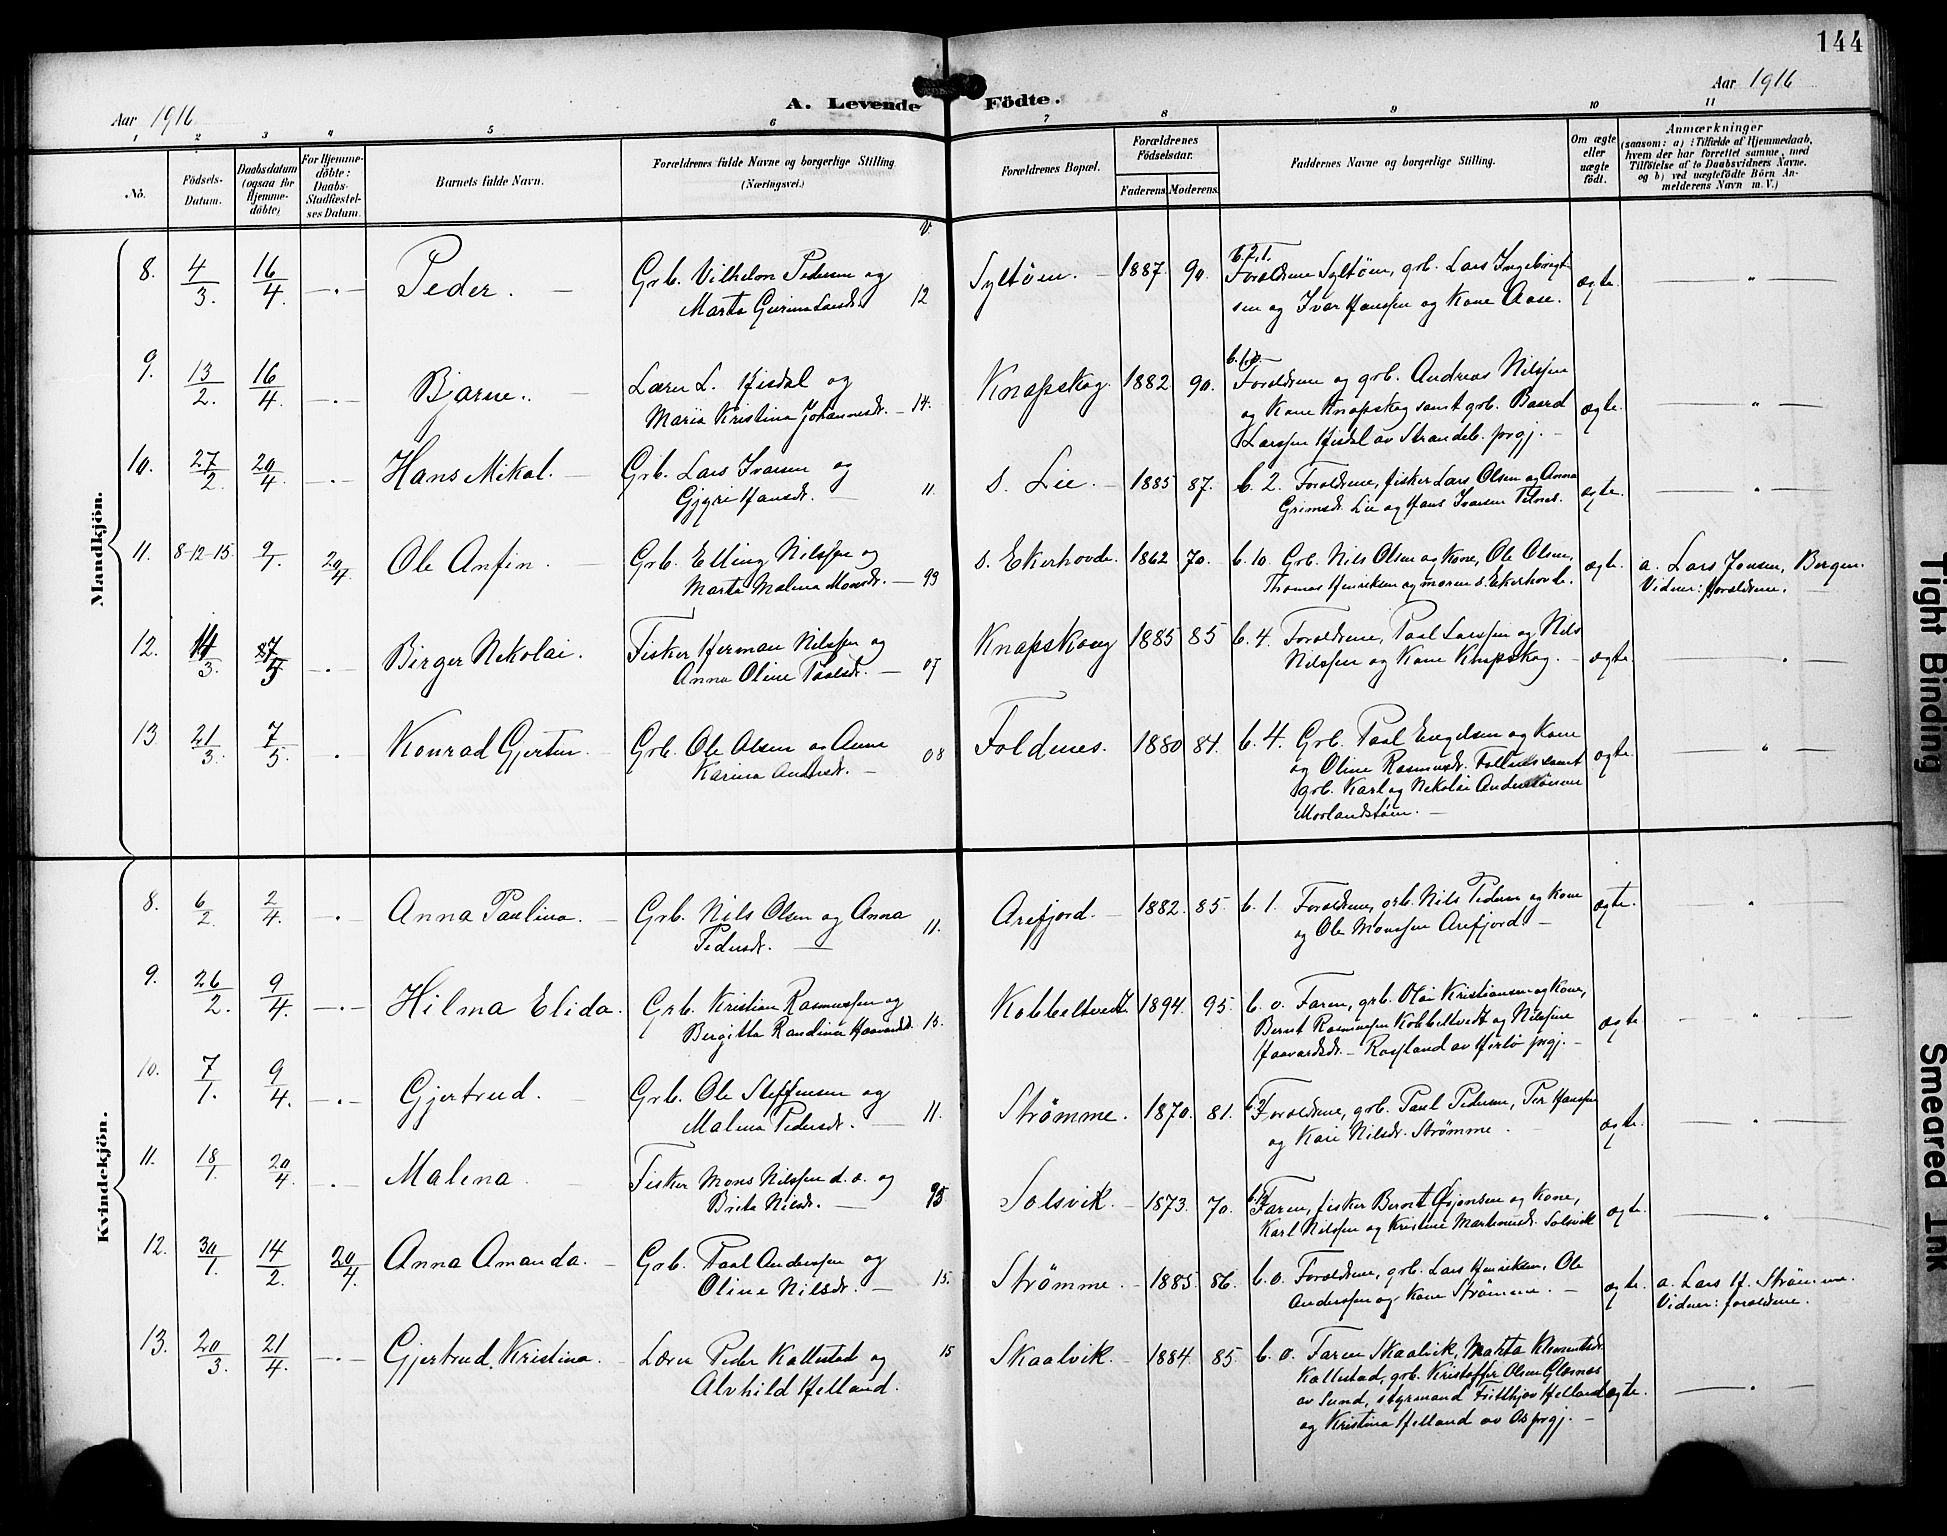 144
Aar 1916
A. Levende Födte.
Aar 1916
1 2 3 4 5 6 7 8 9 10 11
No.
Födsels-Datum.
Daabsdatum (ogsaa for Hjemmedöbte)
For Hjemmedöbte: Daabs-Stadfæstelses Datum.
Barnets fulde Navn.
Forældrenes fulde Navne og borgerlige Stilling
(Næringsvei.)
Forældrenes Bopæl.
Forældrenes Födselsaar.
Faderens. Moderens.
Faddernes Navne og borgerlige Stilling.
Om ægte eller uægte födt.
Anmærkninger
(saasom: a) i Tilfælde af Hjemmedaab, hvem der har forrettet samme, med Tilföielse af to Daabsvidners Navne. og b) ved uægtefödte Börn Anmelderens Navn m. V.)
Mandkjön.
8. 4/3 16/4 Peder. Grb. Vilhelm Pedersen og Syltøen. 1887. 90. Foreldrene Syltøen, grb. Lars Ingebrigt ægte
Marta 12 sen og Ivar Hanssen og Kone Aase.
9. 13/2 16/4 Bjarne. Lærer L. Hisdal og Knapskog. 1882 90. Foreldrene og grb. Andreas Nilssen ægte
Maria Kristina Johannesdr. 14. og Kone Knapskog samt grb. Baard
Larssen Hisdal av Strandeb. prgj.
10. 27/2 20/4 Hans Mikal. Grb. Lars Ivarsen og s. Lie. 1885 87. b. 2. Foreldrene, fisker Lars Olsen og Anna ægte.
Gjøri Hansdr. 11. Grimsdr. Lie og Hans Ivarsen
11. 8-12-15 9/1. 20/4 Ole Anfin. Grb. Elling Nilssen og s. Ekerhovde. 1862 70. b. 10. Grb. Nils Olsen og Kone, Ole Olsen, ægte. a. Lars Jonsen, Bergen.
Marta Malena Monsdr. 93 Thomas Henriksen og moren s. Ekerhovde. Vidner: foreldrene.
12. 14/3 Birger Nikolai. Fisker Herman Nilssen og Knapskaug 1885 85 b. 4. Foreldrene, Paal Larssen og Nils ægte.
Anna Oline Paalsdr. 07 Nilssen og Kone Knapskog.
13. 21/3 7/5 Konrad Gjerten. Grb. Ole Olsen og Anne Foldnes. 1880 84. b. 4. Grb. Paal Engelsen og Kone ægte.
Karina Andersdr. 08 og Oline Rasmusdr. Follnes samt
grb. Karl og Nikolai Anderssønner
Morlandstøen.
Kvindekjön.
8. 6/2 2/4 Anna Paulina. Grb. Nils Olsen og Anna Arefjord. 1882. 85. b. 1. Foreldrene, grb. Nils Pedersen og Kone ægte.
Pedersdr. 11. og Ole Monssen Arefjord.
9. 26/2. 9/4. Hilma Elida. Grb. Kristian Rasmussen og Kobbeltvedt. 1894. 95. b. 0. Faren, grb. Olai Kristiansen og Kone, ægte
Bergitta Randina Haavardsd. 15. Bernt Rasmussen Kobbeltvedt og Nilsine
Haavardsdr. Rossland av Herlø prgj.
10. 7/1. 9/4. Gjertrud. Grb. Ole Steffensen og Strømme. 1870. 81. Foreldrene, grb. Paul Pedersen, Per Hanssen ægte.
Malena Pedersdr. 11. og Kari Nilsdr. Strømme.
11. 18/1. 20/4. Malena. Fisker Mons Nilssen d. o. og Solsvik. 1873. 70. Faren, fisker Bernt Ørjansen og Kone, ægte.
Brita Nilsdr. 95 Karl Nilssen og Kristine Martinusdr. Solsvik
12. 30/1. 14/2. 20/4. Anna Amanda. Grb. Paal Anderssen og Strømme. 1885. 86. b. 0. Foreldrene, grb. Lars Henriksen, Ole ægte. a. Lars H. Strømme.
Oline Nilsdr. 15. Anderssen og Kone Strømme. Vidner: foreldrene.
13. 20/3. 21/4. Gjertrud Kristina. Lærer Peder Kallestad og Skaalvik. 1884. 85. b. 0. Faren Skaalvik, Marta Klementsdr.
Alvhild Helland. 15 Kallestad, grb. Kristoffer Olsen Glesnes
av Sund, styrmand Fritthjov Helland ægte.
og Kristina Helland av Os prgj.
Tight Binding
Smeared Ink